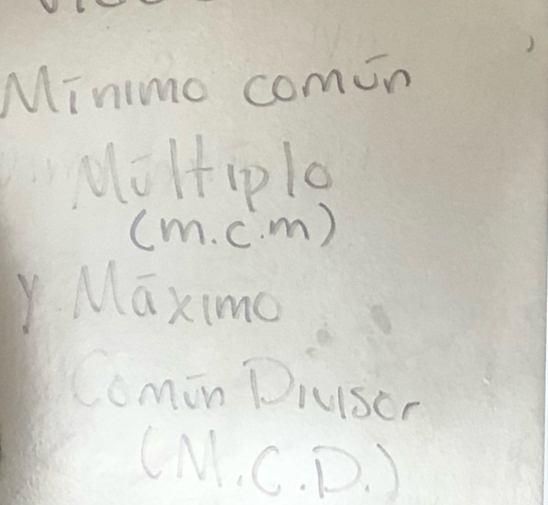 Mínimo común
Múltiplo
(m.c.m)
y Máximo
Común Divisor
(M.C.D.)